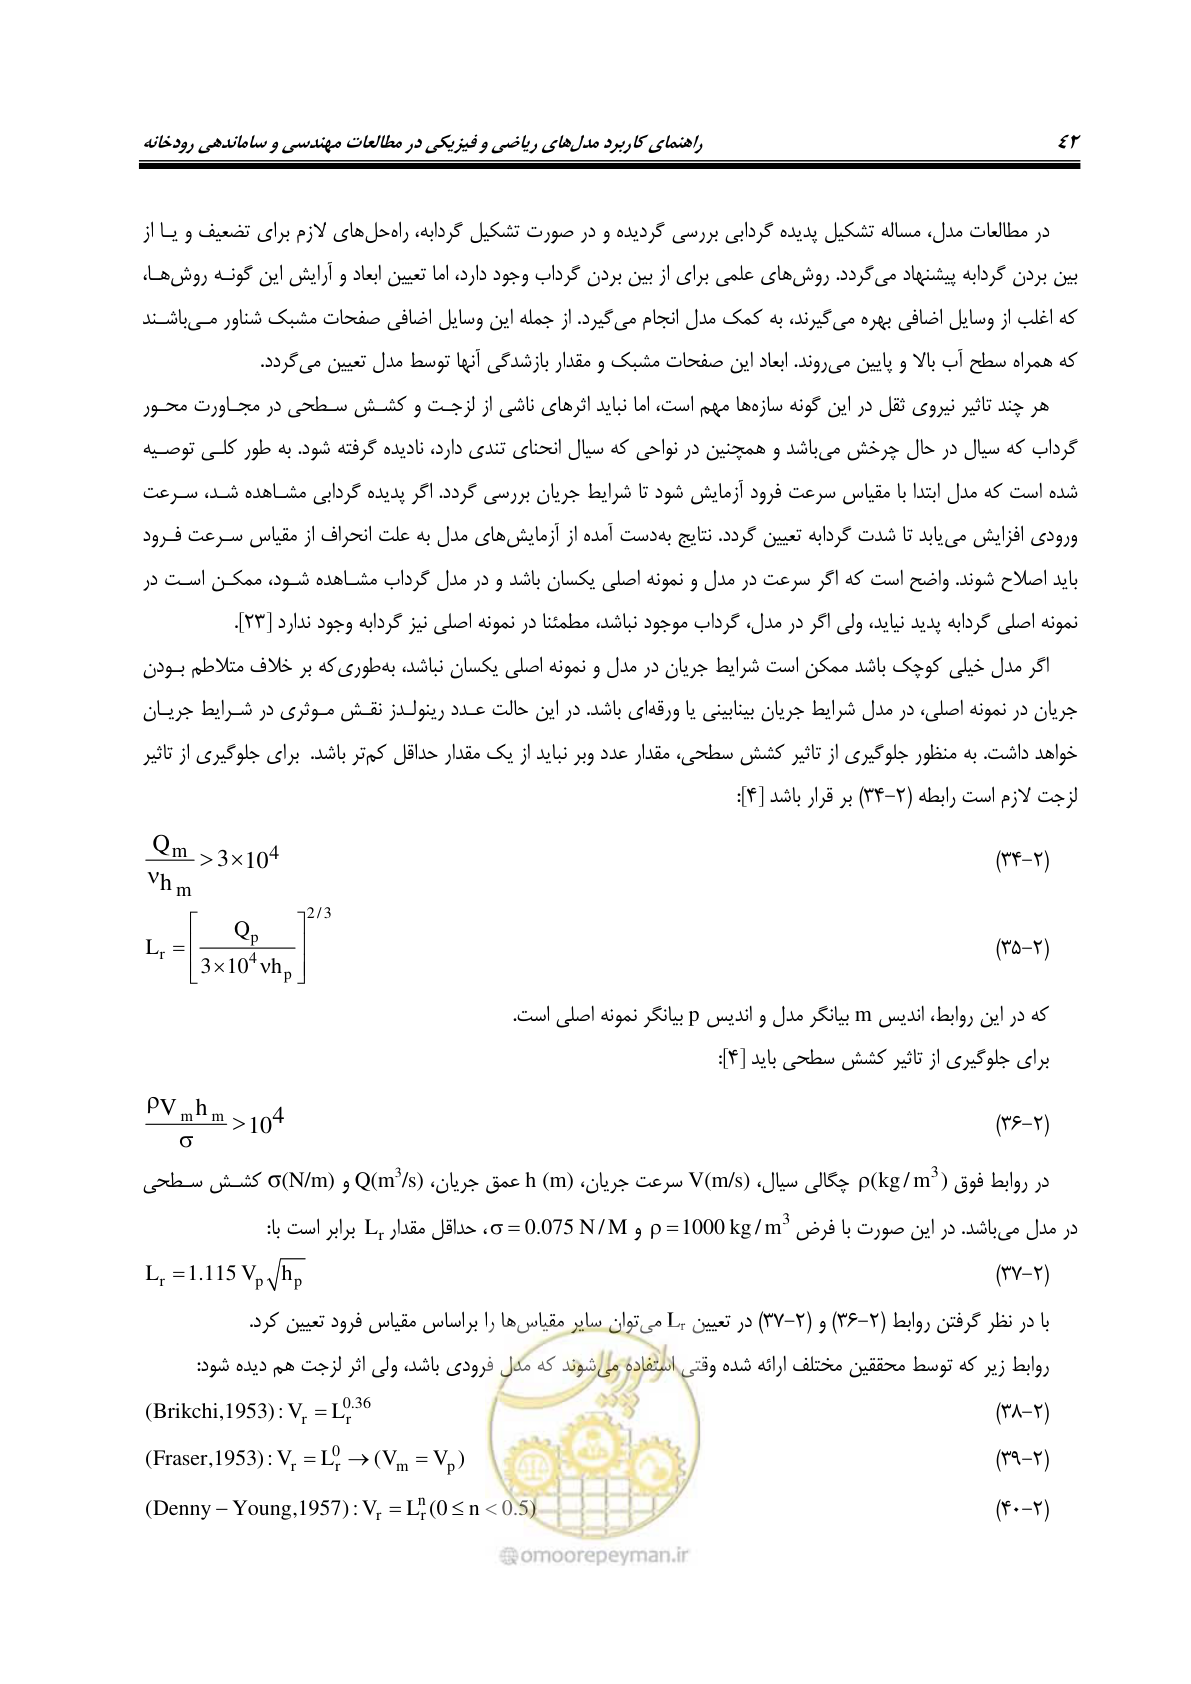 ۴۲ راهنمای کاربرد مدل‌های ریاضی و فیزیکی در مطالعات مهندسی و ساماندهی رودخانه
در مطالعات مدل، مساله تشکیل پدیده گردابی بررسی گردیده و در صورت تشکیل گردابه، راه‌حل‌های لازم برای تضعیف و یا از
بین بردن گردابه پیشنهاد می‌گردد. روش‌های علمی برای از بین بردن گرداب وجود دارد، اما تعیین ابعاد و آرایش این گونه روش‌ها،
که اغلب از وسایل اضافی بهره می‌گیرند، به کمک مدل انجام می‌گیرد. از جمله این وسایل اضافی صفحات مشبک شناور می‌باشند
که همراه سطح آب بالا و پایین می‌روند. ابعاد این صفحات مشبک و مقدار بازشدگی آنها توسط مدل تعیین می‌گردد.
هر چند تاثیر نیروی ثقل در این گونه سازه‌ها مهم است، اما نباید اثرهای ناشی از لزجت و کشش سطحی در مجاورت محور
گرداب که سیال در حال چرخش می‌باشد و همچنین در نواحی که سیال انحنای تندی دارد، نادیده گرفته شود. به طور کلی توصیه
شده است که مدل ابتدا با مقیاس سرعت فرود آزمایش شود تا شرایط جریان بررسی گردد. اگر پدیده گردابی مشاهده شد، سرعت
ورودی افزایش می‌یابد تا شدت گردابه تعیین گردد. نتایج به‌دست آمده از آزمایش‌های مدل به علت انحراف از مقیاس سرعت فرود
باید اصلاح شوند. واضح است که اگر سرعت در مدل و نمونه اصلی یکسان باشد و در مدل گرداب مشاهده شود، ممکن است در
نمونه اصلی گردابه پدید نیاید، ولی اگر در مدل، گرداب موجود نباشد، مطمئنا در نمونه اصلی نیز گردابه وجود ندارد [۲۳].
اگر مدل خیلی کوچک باشد ممکن است شرایط جریان در مدل و نمونه اصلی یکسان نباشد، به‌طوری‌که بر خلاف متلاطم بودن
جریان در نمونه اصلی، در مدل شرایط جریان بینابینی یا ورقه‌ای باشد. در این حالت عدد رینولدز نقش موثری در شرایط جریان
خواهد داشت. به منظور جلوگیری از تاثیر کشش سطحی، مقدار عدد وبر نباید از یک مقدار حداقل کم‌تر باشد. برای جلوگیری از تاثیر
لزجت لازم است رابطه (۲-۳۴) بر قرار باشد [۴]:
(۲-۳۴) Q_m / νh_m > 3×10^4
(۲-۳۵) L_r = [Q_p / 3×10^4 νh_p]^2/3
که در این روابط، اندیس m بیانگر مدل و اندیس p بیانگر نمونه اصلی است.
برای جلوگیری از تاثیر کشش سطحی باید [۴]:
(۲-۳۶) ρV_m h_m / σ > 10^4
در روابط فوق ρ(kg/m^3) چگالی سیال، V(m/s) سرعت جریان، h (m) عمق جریان، Q(m^3/s) و σ(N/m) کشش سطحی
در مدل می‌باشد. در این صورت با فرض ρ = 1000 kg/m^3 و σ = 0.075 N/M، حداقل مقدار L_r برابر است با:
(۲-۳۷) L_r = 1.115 V_p √h_p
با در نظر گرفتن روابط (۲-۳۶) و (۲-۳۷) در تعیین L_r می‌توان سایر مقیاس‌ها را براساس مقیاس فرود تعیین کرد.
روابط زیر که توسط محققین مختلف ارائه شده وقتی استفاده می‌شوند که مدل فرودی باشد، ولی اثر لزجت هم دیده شود:
(۲-۳۸) (Brikchi,1953): V_r = L_r^0.36
(۲-۳۹) (Fraser,1953): V_r = L_r^0 → (V_m = V_p)
(۲-۴۰) (Denny – Young,1957): V_r = L_r^n (0 ≤ n < 0.5)
@omoorepeyman.ir